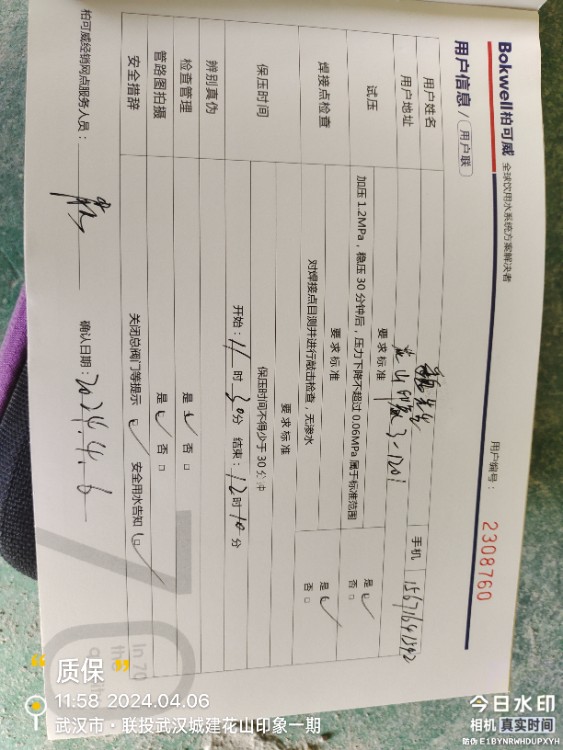 Bokwell柏可威 全球饮用水系统方案解决者
用户信息 / 用户联
用户编号：2308760
用户姓名
手机
用户地址 花山印象3-1201
要求标准
试压 加压1.2MPa，稳压30分钟后，压力下降不超过0.06MPa属于标准范围 是 否
要求标准
焊接点检查 对焊接点目测并进行敲击检查，无渗水 是 否
要求标准
保压时间 保压时间不得少于30分钟
开始：11时30分 结束：12时10分
辨别真伪
检查管理 是 否
管路图拍摄 是 否
安全措辞 关闭总阀门等提示 安全用水告知
柏可威经销网点服务人员：
确认日期：2024.4.6
70
In 70
th
质保
11:58 2024.04.06
武汉市·联投武汉城建花山印象一期
今日水印
相机 真实时间
防伪 E1BYNRWHDUPXYH